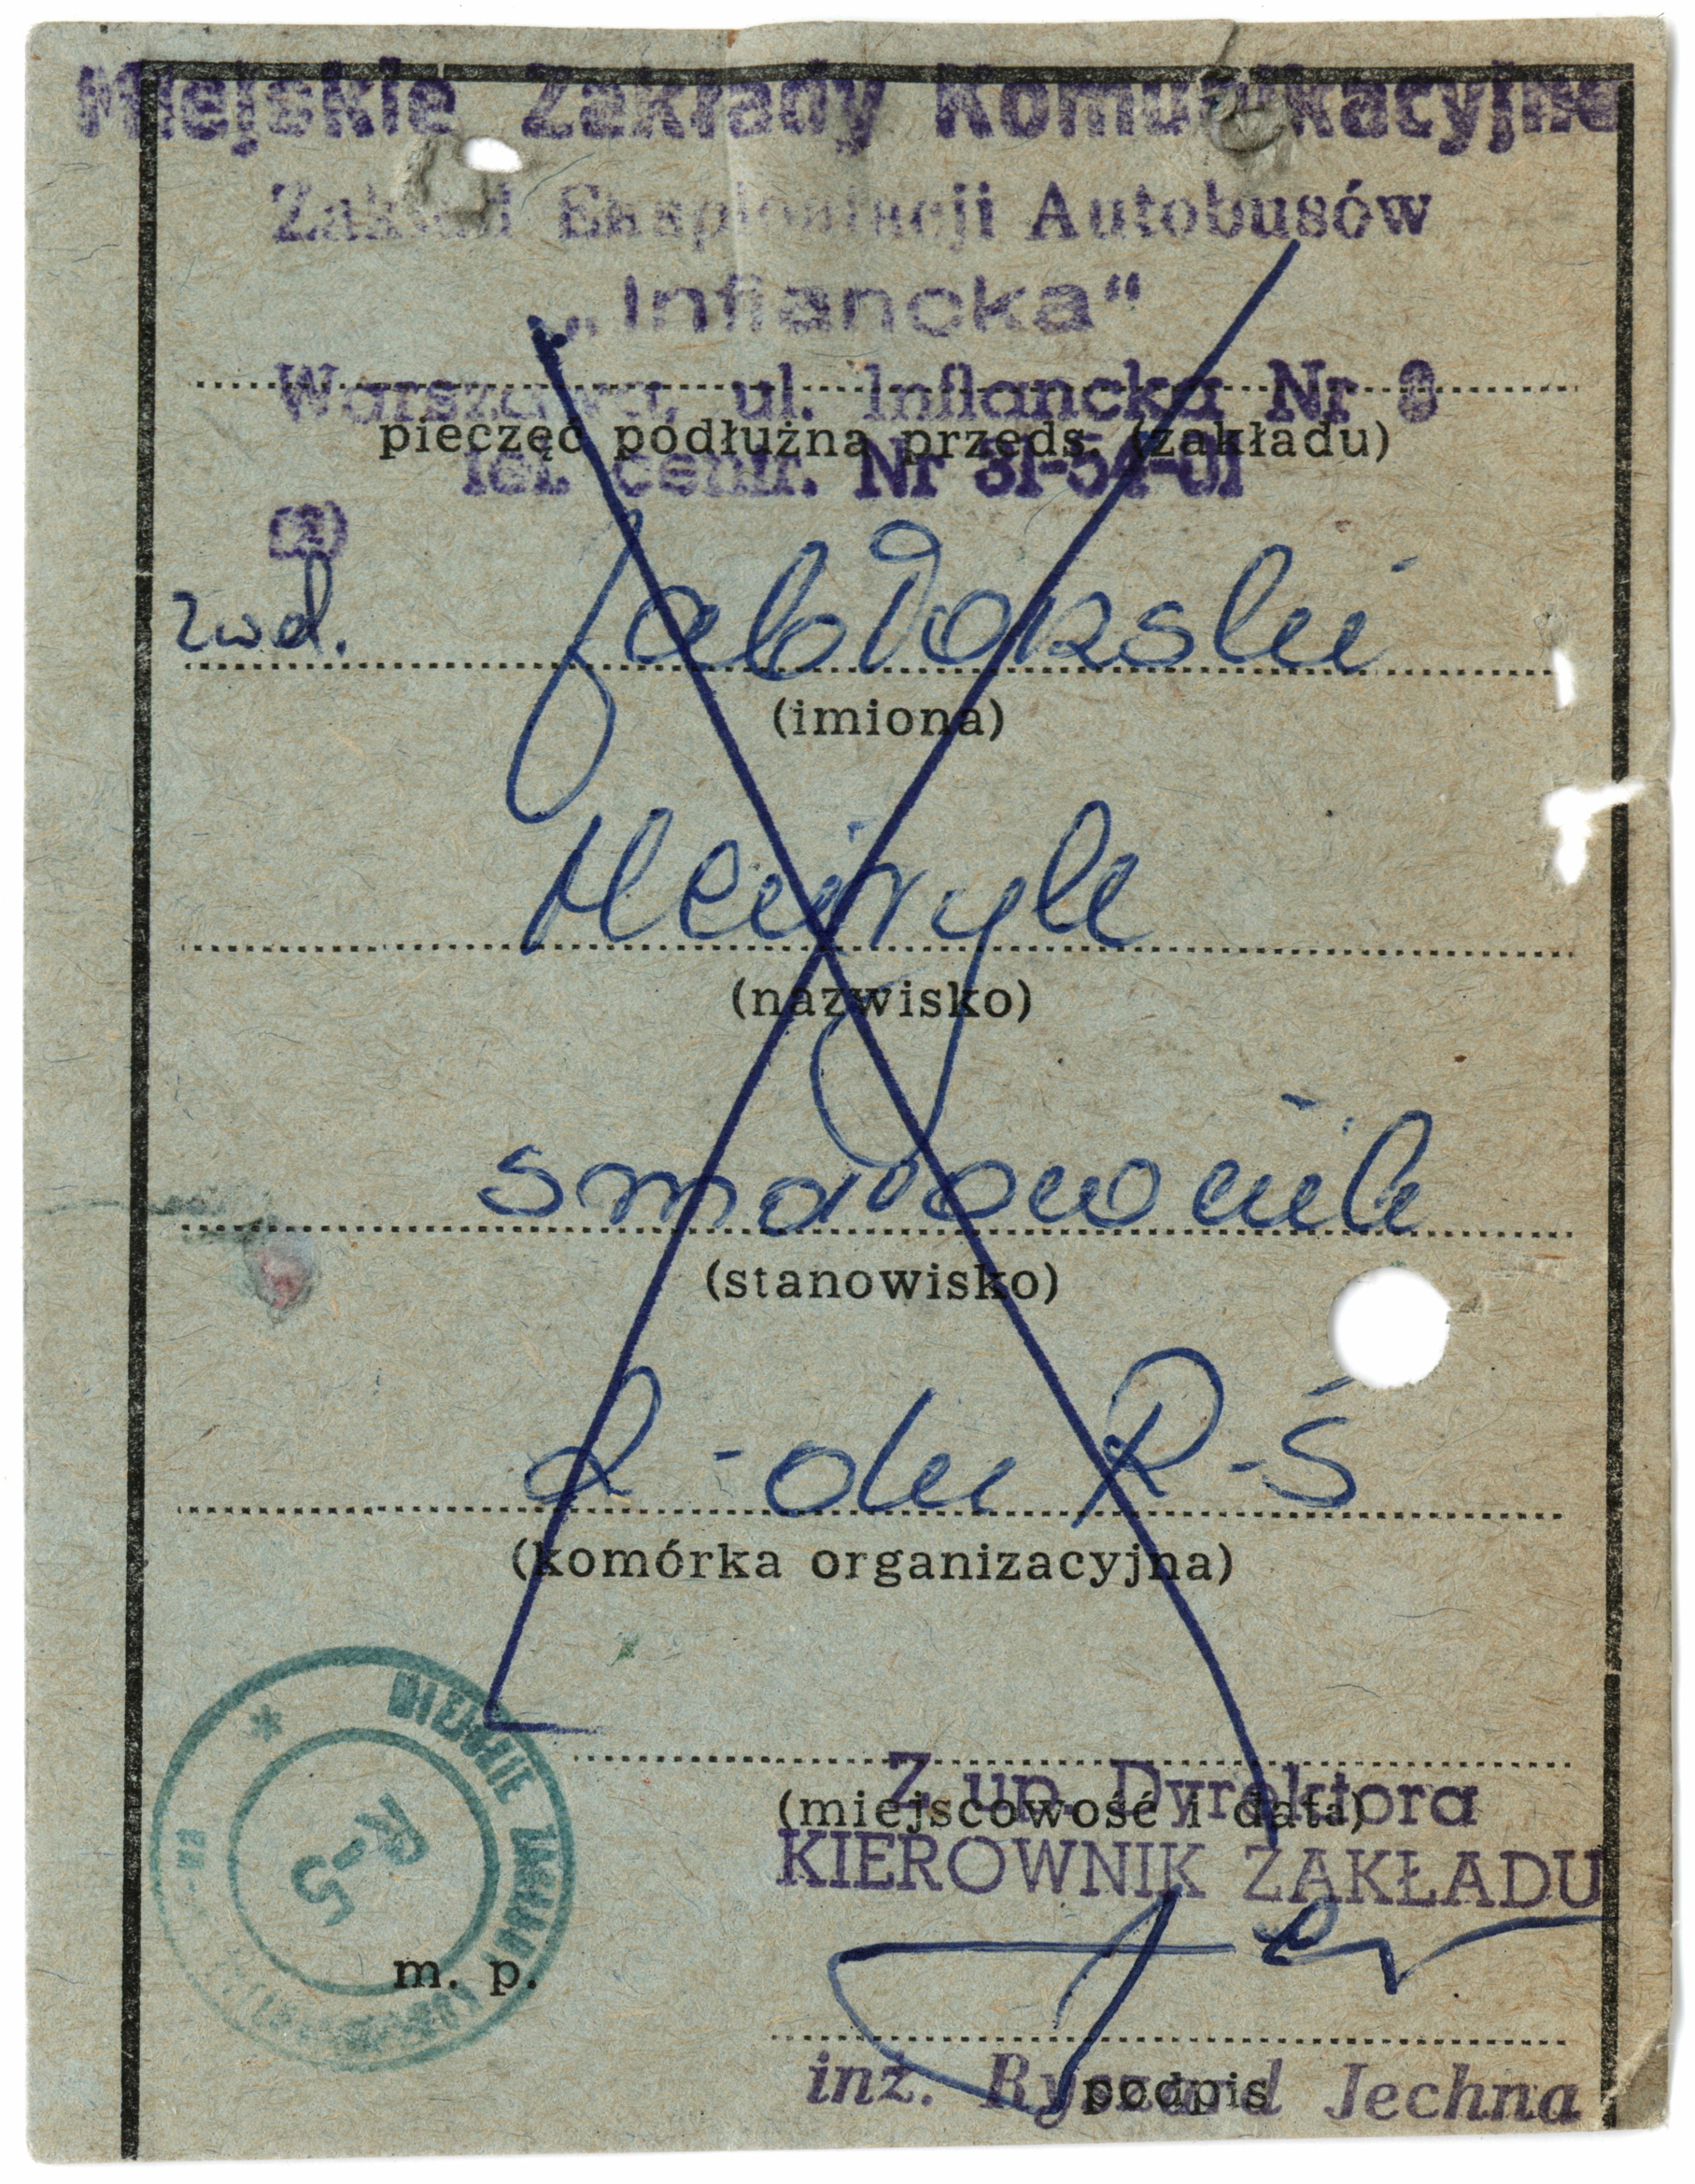 Miejskie Zakłady Komunikacyjne
Zakład Eksploatacji Autobusów
„Inflancka“
Warszawa, ul. Inflancka Nr
pieczęć podłużna przeds. (zakładu)
Tel. centr. Nr 31-54-01
(2)
zwd. Jabłoński
(imiona)
Henryk
(nazwisko)
smarownik
(stanowisko)
R-Ś
(komórka organizacyjna)
MIEJSKIE ZAKŁADY
R-5
(miejscowość i data)
Z up. Dyrektora
KIEROWNIK ZAKŁADU
m. p.
podpis
inż. Ryszard Jechna